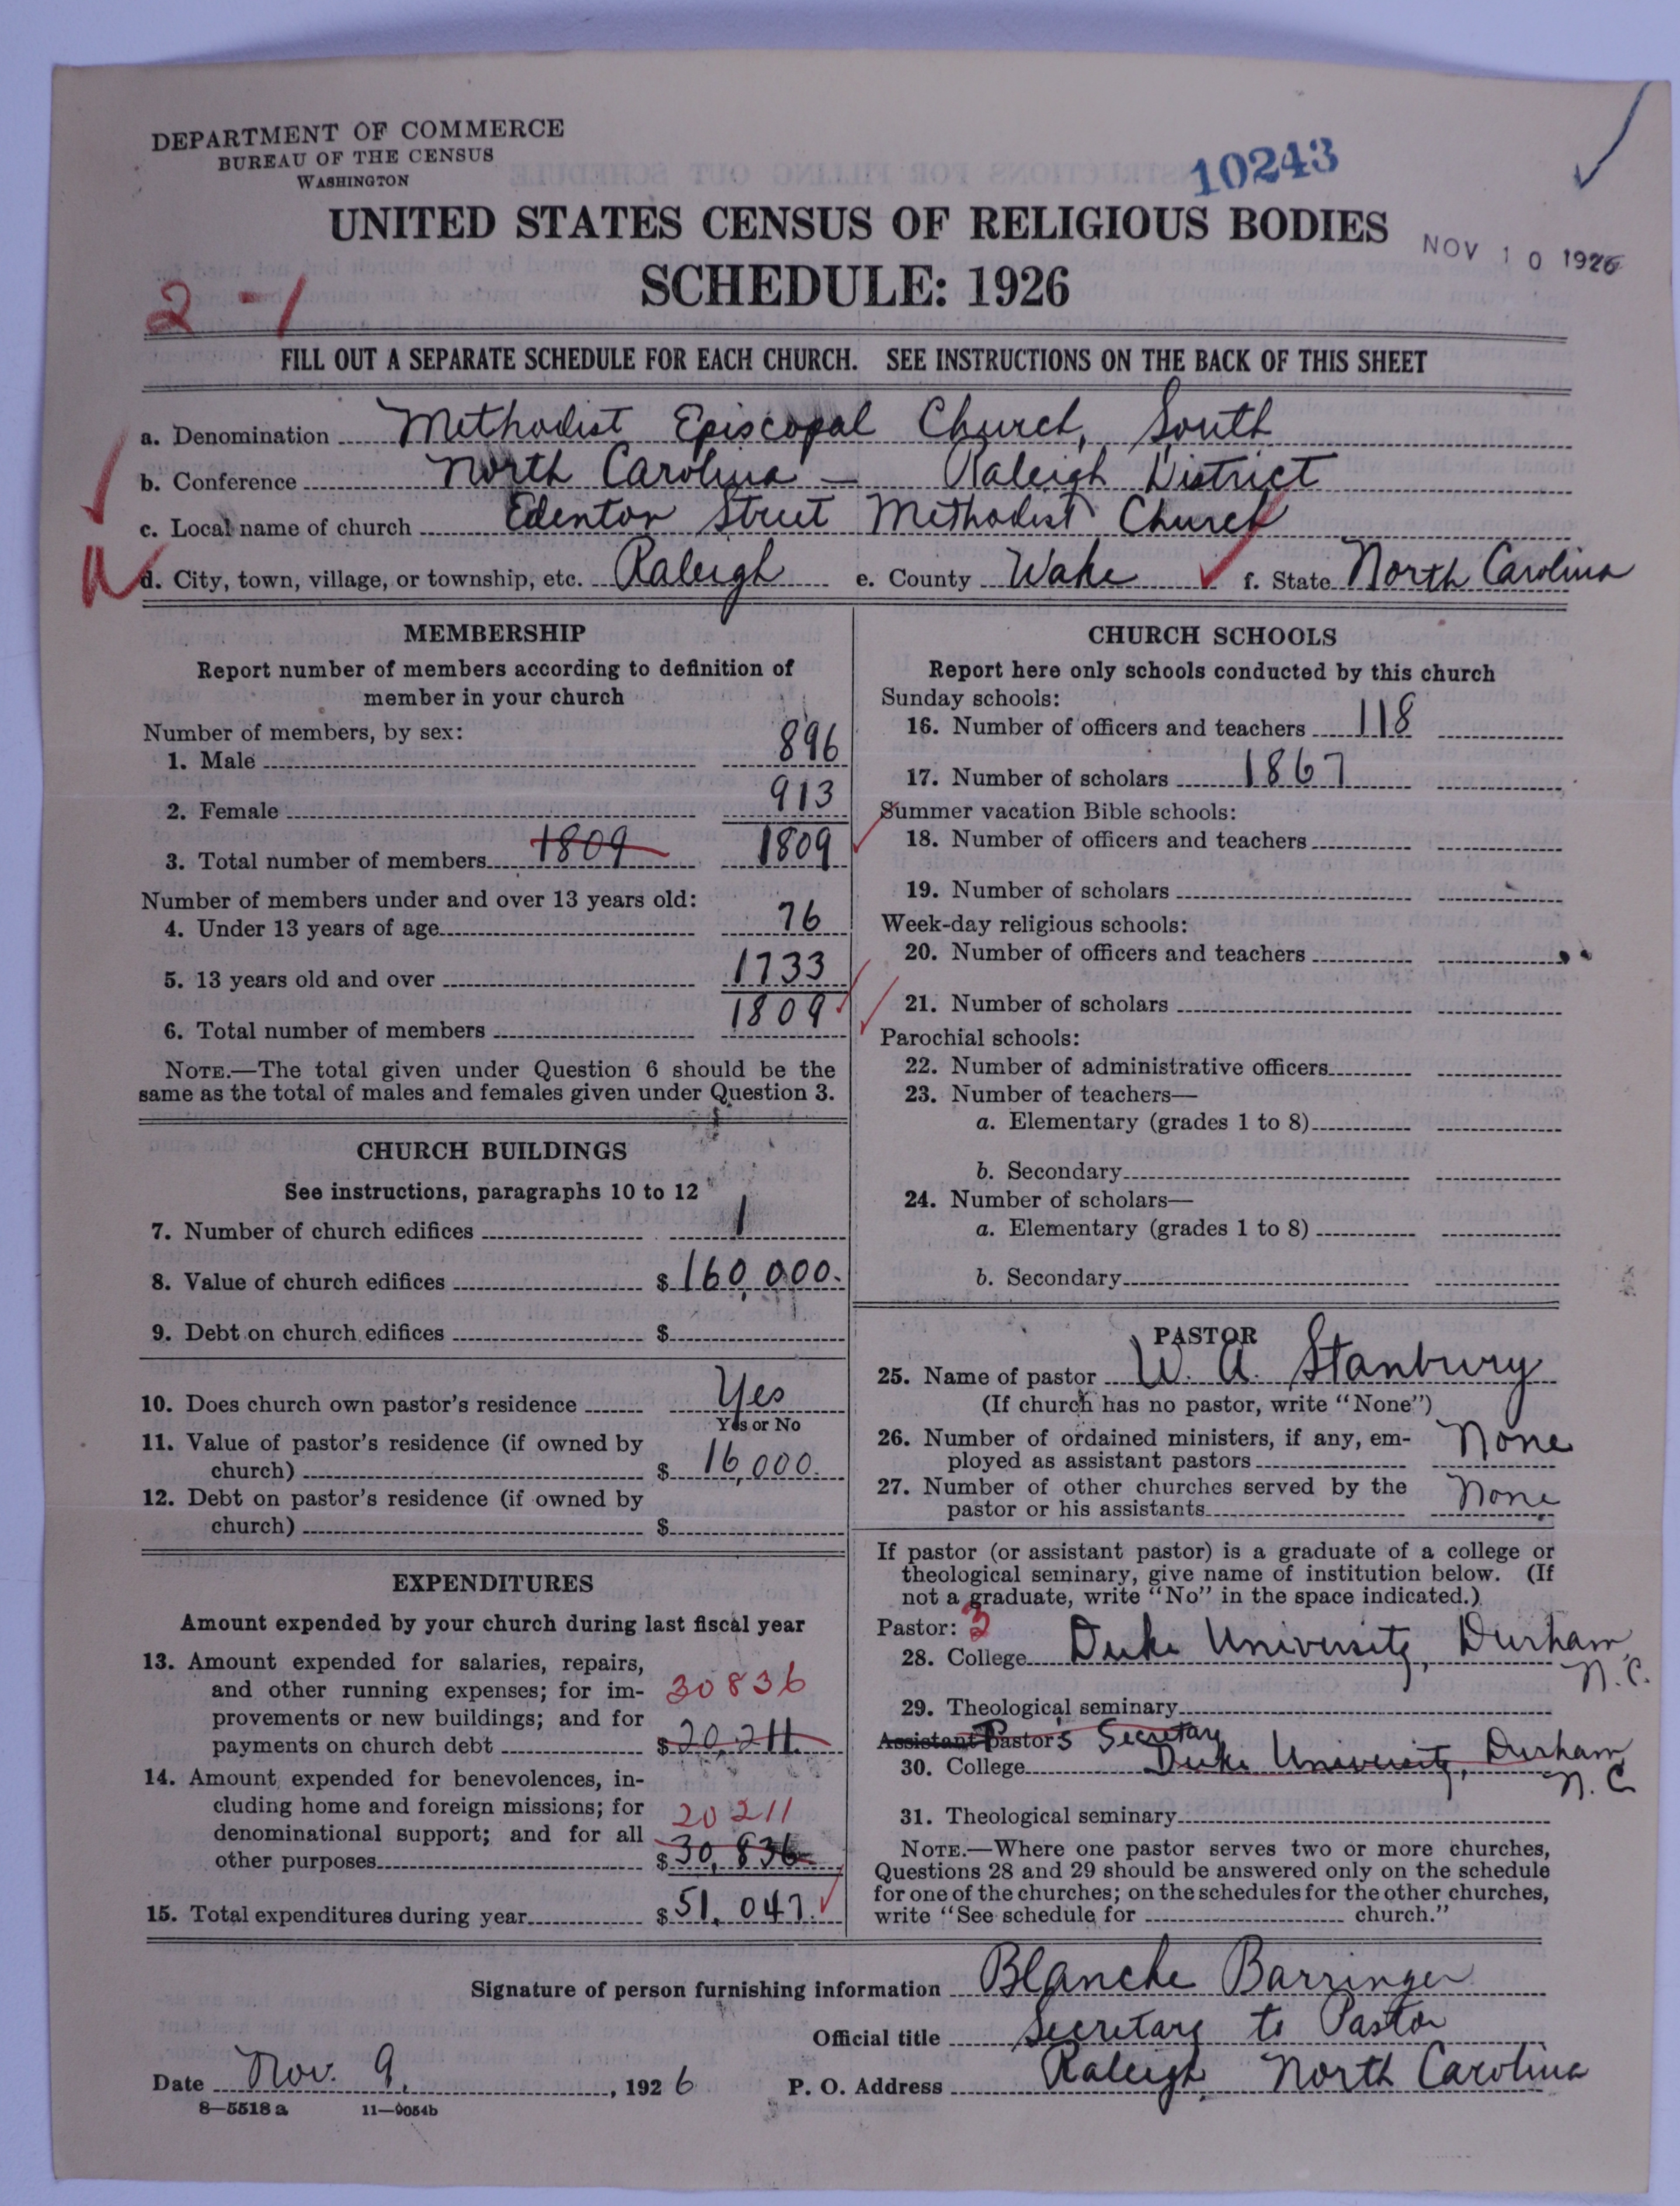 DEPARTMENT OF COMMERCE
BUREAU OF THE CENSUS
WASHINGTON
10243
UNITED STATES CENSUS OF RELIGIOUS BODIES
NOV 10 1926
SCHEDULE: 1926
2-1
FILL OUT A SEPARATE SCHEDULE FOR EACH CHURCH. SEE INSTRUCTIONS ON THE BACK OF THIS SHEET
a. Denomination Methodist Episcopal Church, South
b. Conference North Carolina — Raleigh District
c. Local name of church Edenton Street Methodist Church
d. City, town, village, or township, etc. Raleigh e. County Wake f. State North Carolina
MEMBERSHIP
Report number of members according to definition of
member in your church
Number of members, by sex:
1. Male 896
2. Female 913
3. Total number of members 1809 1809
Number of members under and over 13 years old:
4. Under 13 years of age 76
5. 13 years old and over 1733
6. Total number of members 1809
NOTE.—The total given under Question 6 should be the
same as the total of males and females given under Question 3.
CHURCH BUILDINGS
See instructions, paragraphs 10 to 12
7. Number of church edifices 1
8. Value of church edifices $160,000.
9. Debt on church edifices $
10. Does church own pastor's residence Yes
Yes or No
11. Value of pastor's residence (if owned by
church) $ 16,000.
12. Debt on pastor's residence (if owned by
church) $
EXPENDITURES
Amount expended by your church during last fiscal year
13. Amount expended for salaries, repairs,
and other running expenses; for im-
30836
provements or new buildings; and for
payments on church debt $20,211.
14. Amount expended for benevolences, in-
cluding home and foreign missions; for
20211
denominational support; and for all
other purposes $30,836
15. Total expenditures during year $51,047.
CHURCH SCHOOLS
Report here only schools conducted by this church
Sunday schools:
16. Number of officers and teachers 118
17. Number of scholars 1867
Summer vacation Bible schools:
18. Number of officers and teachers
19. Number of scholars
Week-day religious schools:
20. Number of officers and teachers
21. Number of scholars
Parochial schools:
22. Number of administrative officers
23. Number of teachers—
a. Elementary (grades 1 to 8)
b. Secondary
24. Number of scholars—
a. Elementary (grades 1 to 8)
b. Secondary
PASTOR
25. Name of pastor W. A. Stanbury
(If church has no pastor, write "None")
26. Number of ordained ministers, if any, em-
ployed as assistant pastors None
27. Number of other churches served by the
pastor or his assistants None
If pastor (or assistant pastor) is a graduate of a college or
theological seminary, give name of institution below. (If
not a graduate, write "No" in the space indicated.)
Pastor: 3
28. College Duke University, Durham,
N. C.
29. Theological seminary
Assistant Pastor's Secretary
30. College Duke University, Durham,
N. C
31. Theological seminary
NOTE.—Where one pastor serves two or more churches,
Questions 28 and 29 should be answered only on the schedule
for one of the churches; on the schedules for the other churches,
write "See schedule for church."
Signature of person furnishing information Blanche Barringer
Official title Secretary to Pastor
Date Nov. 9, 1926 P. O. Address Raleigh, North Carolina
8—5518 a 11—9054b